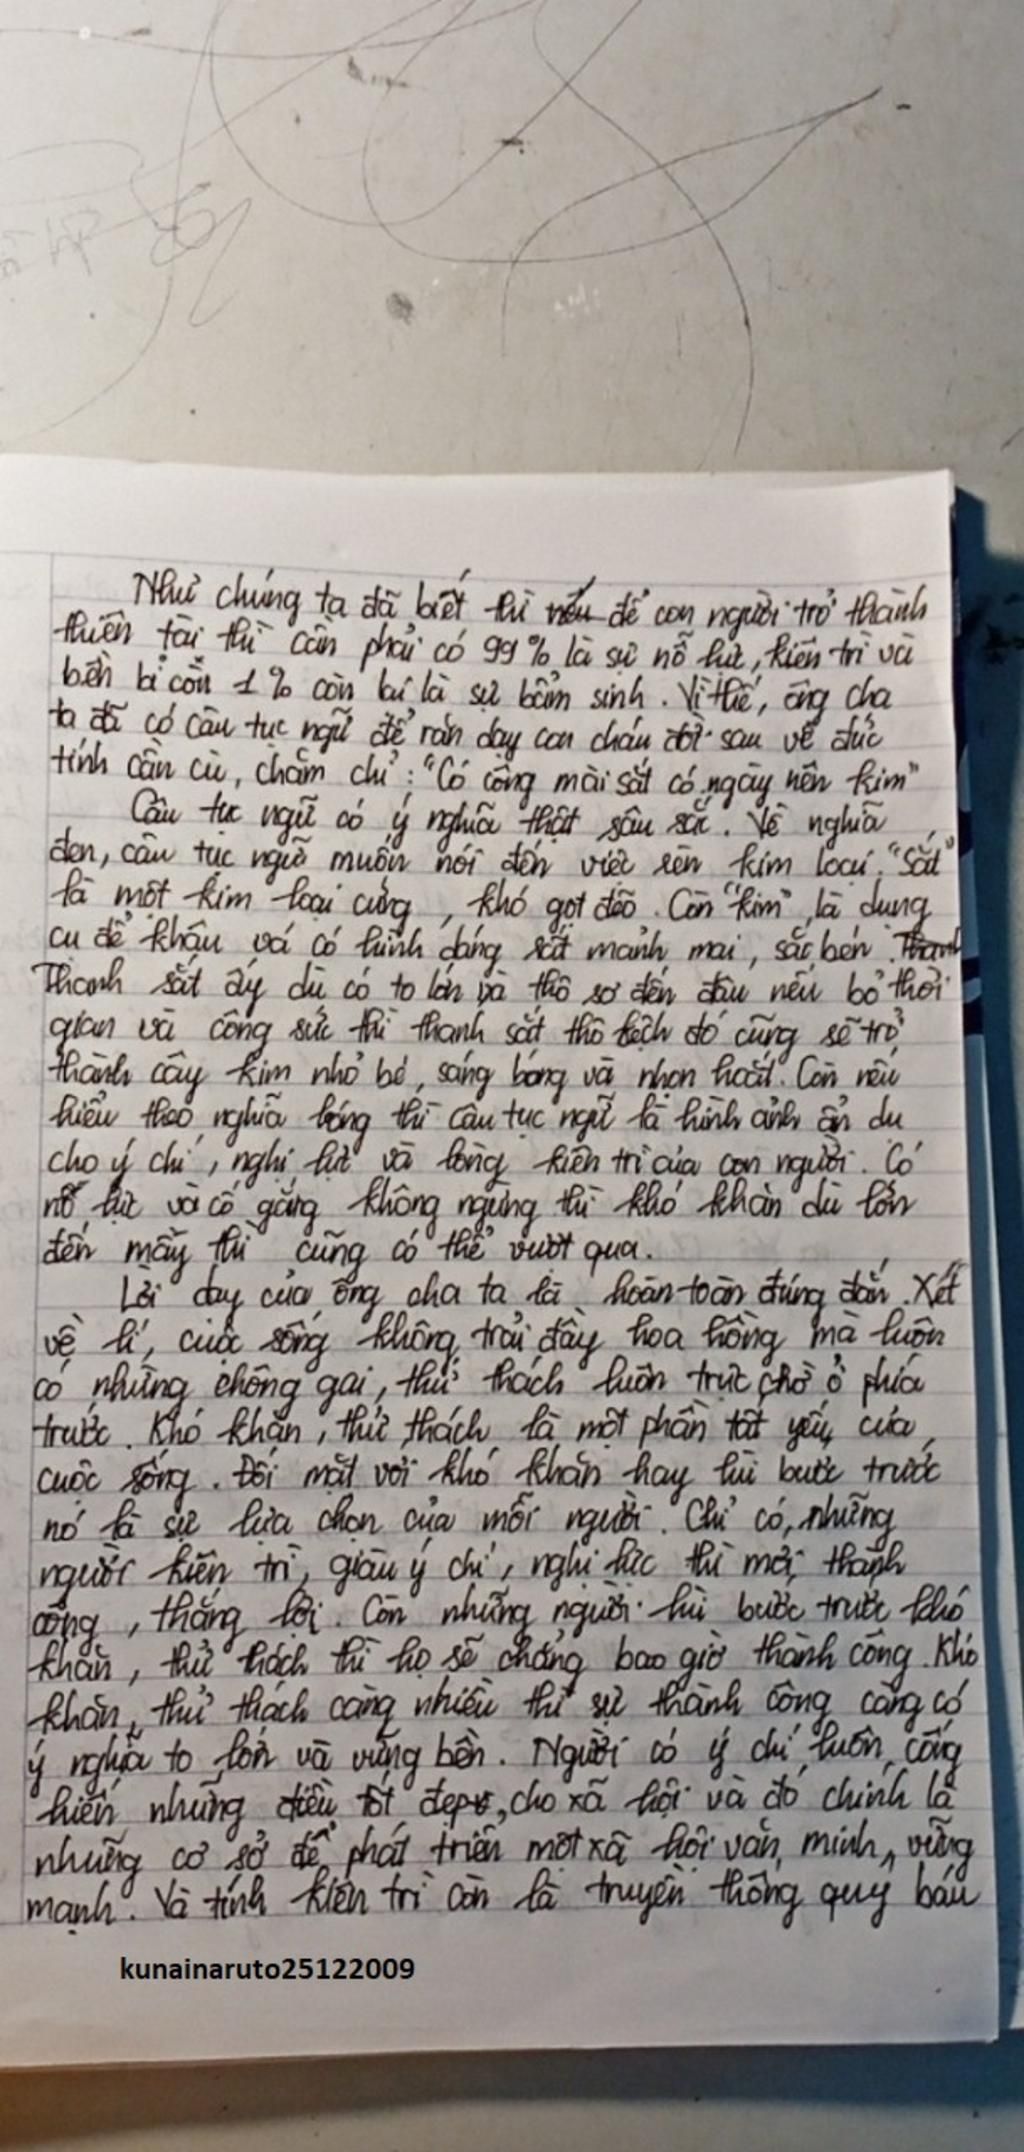 Như chúng ta đã biết thì nếu để con người trở thành
thiên tài thì cần phải có 99% là sự nỗ lực, kiên trì và
bền bỉ còn 1% còn lại là sự bẩm sinh. Vì thế, ông cha
ta đã có câu tục ngữ để răn dạy con cháu đời sau về đức
tính cần cù, chăm chỉ: "Có công mài sắt có ngày nên kim"
Câu tục ngữ có ý nghĩa thật sâu sắc. Về nghĩa
đen, câu tục ngữ muốn nói đến việc rèn kim loại. "Sắt"
là một kim loại cứng, khó gọt đẽo. Còn "kim", là dụng
cụ để khâu vá có hình dáng rất mảnh mai, sắc bén. Thanh
Thanh sắt ấy dù có to lớn và thô sơ đến đâu nếu bỏ thời
gian và công sức thì thanh sắt thô kệch đó cũng sẽ trở
thành cây kim nhỏ bé, sáng bóng và nhọn hoắt. Còn nếu
hiểu theo nghĩa bóng thì câu tục ngữ là hình ảnh ẩn dụ
cho ý chí, nghị lực và lòng kiên trì của con người. Có
nỗ lực và cố gắng không ngừng thì khó khăn dù lớn
đến mấy thì cũng có thể vượt qua.
Lời dạy của ông cha ta là hoàn toàn đúng đắn. Xét
về lí, cuộc sống không trải đầy hoa hồng mà luôn
có những chông gai, thử thách luôn trực chờ ở phía
trước. Khó khăn, thử thách là một phần tất yếu của
cuộc sống. Đối mặt với khó khăn hay lùi bước trước
nó là sự lựa chọn của mỗi người. Chỉ có, những
người kiên trì, giàu ý chí, nghị lực thì mới thành
công, thắng lợi. Còn những người lùi bước trước khó
khăn, thử thách thì họ sẽ chẳng bao giờ thành công. Khó
khăn, thử thách càng nhiều thì sự thành công càng có
ý nghĩa to lớn và vững bền. Người có ý chí luôn cống
hiến những điều tốt đẹp, cho xã hội và đó chính là
những cơ sở để phát triển một xã hội văn minh, vững
mạnh. Và tính kiên trì còn là truyền thống quý báu
kunainaruto25122009